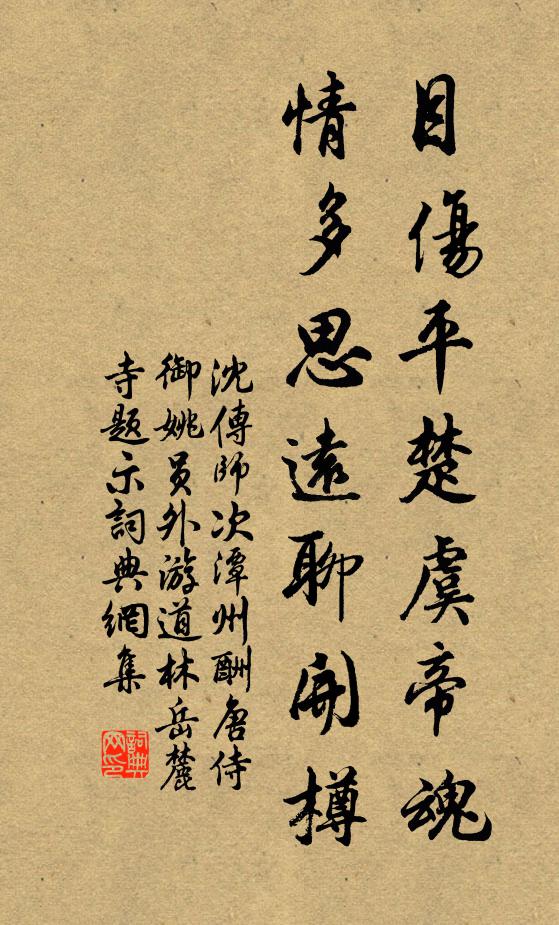 目傷平楚虞帝魂
情多思遠聊開樽
沈傳師次潭州酬唐侍
御姚员外游道林岳麓
寺題示詞典網集
詞典
网印